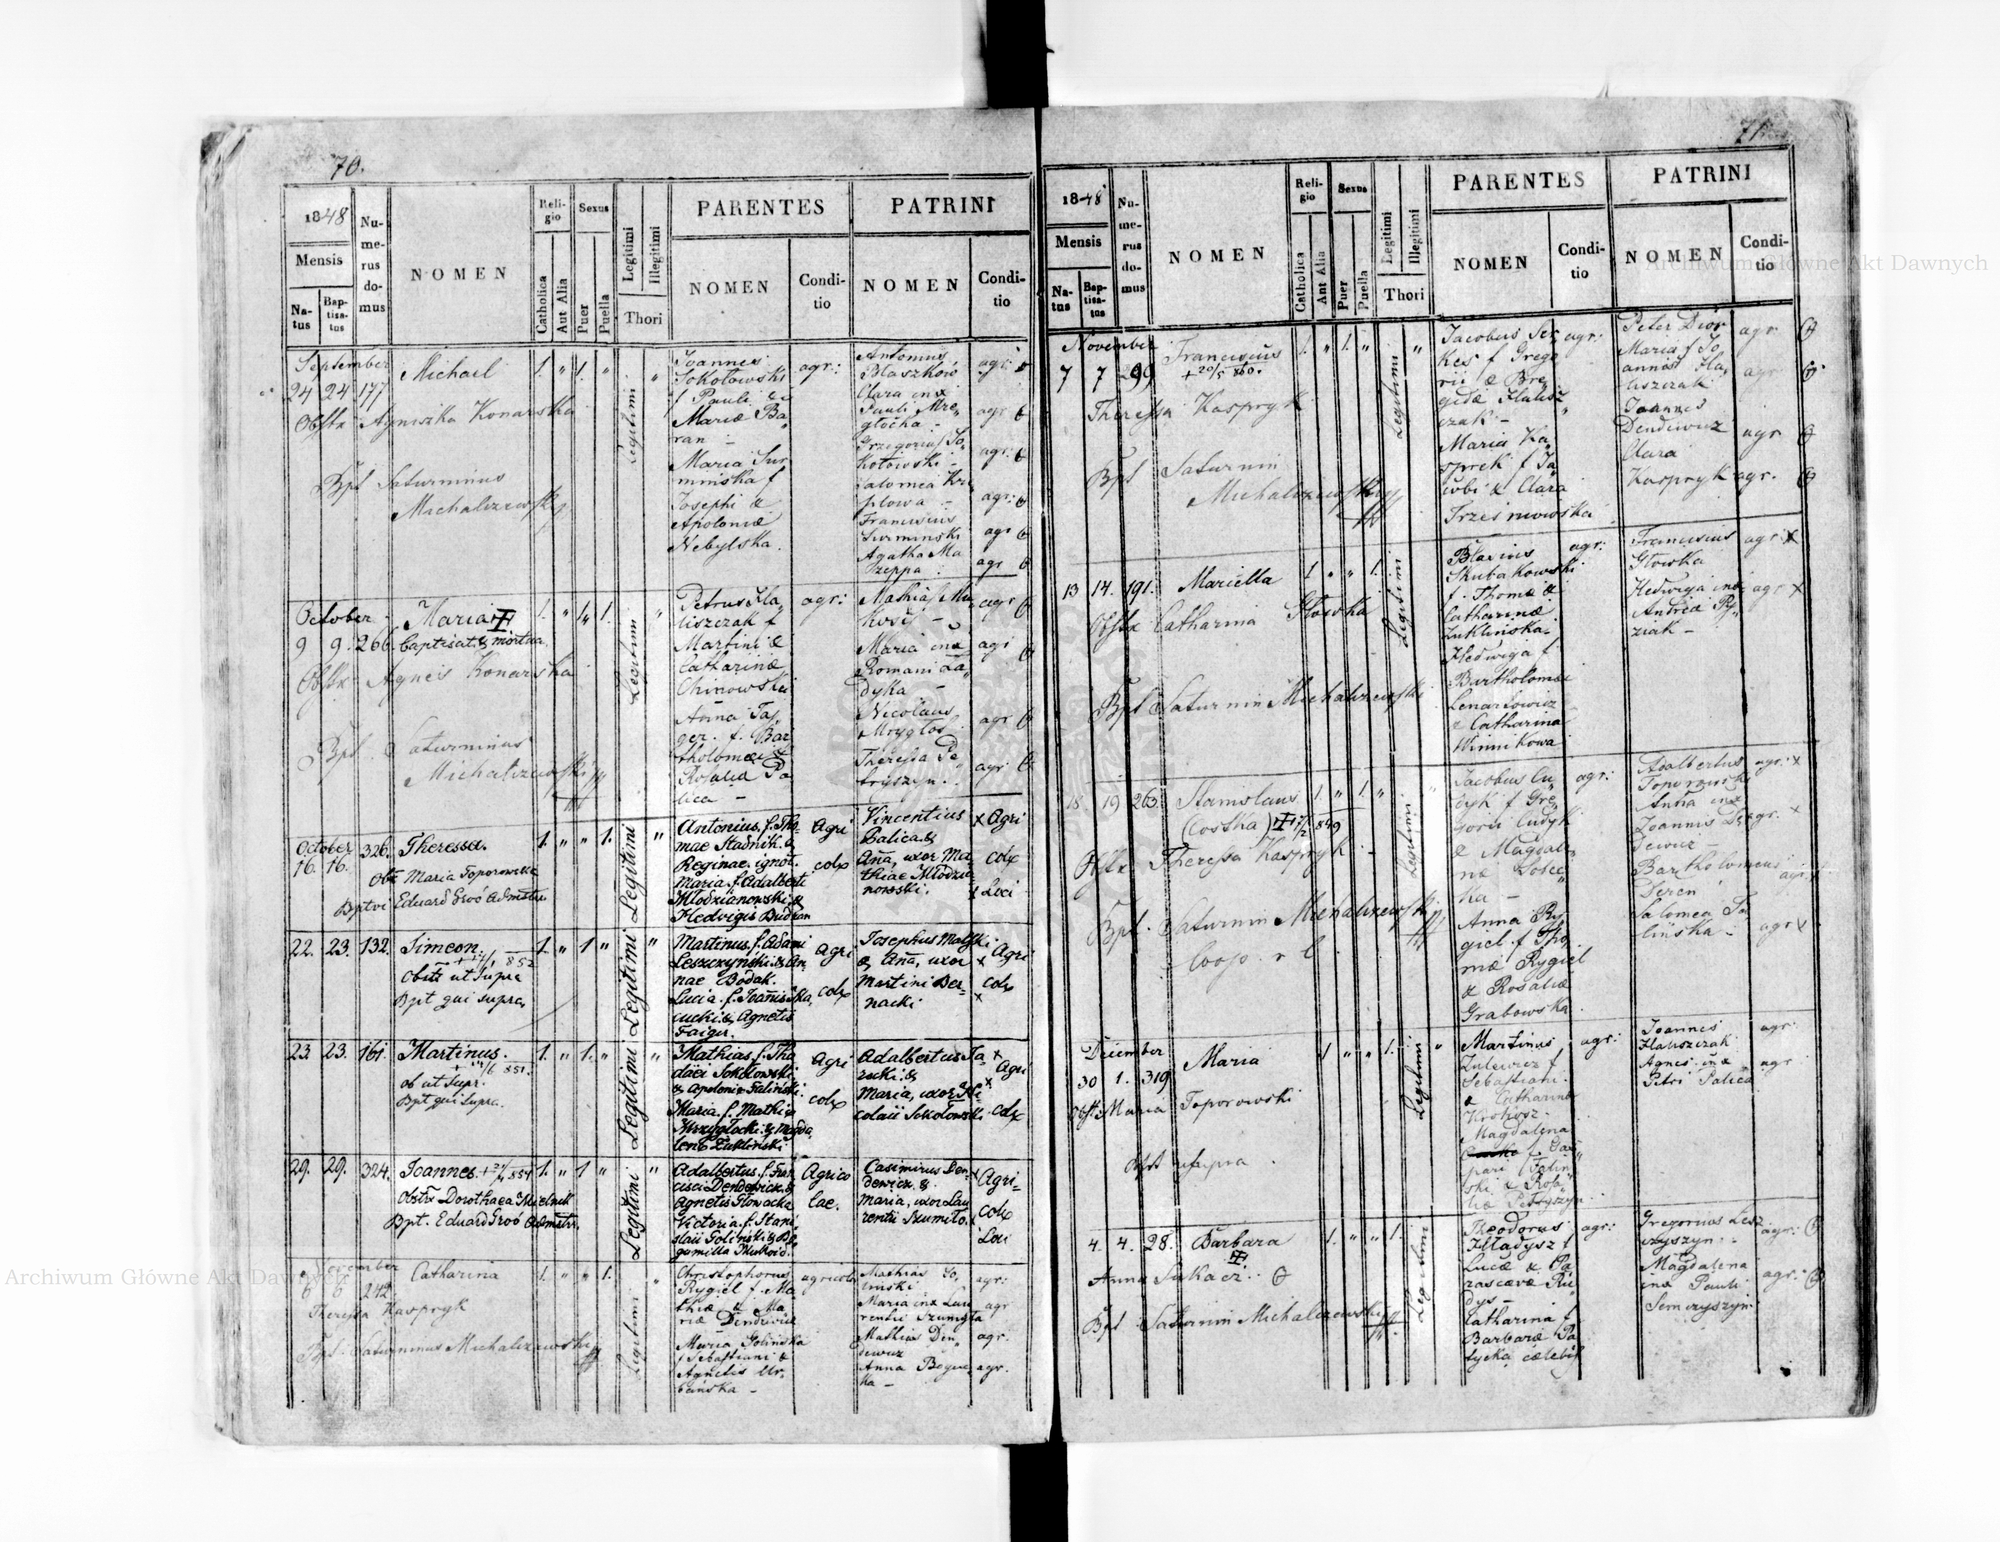 70.
1848
Mensis
Na-
tus
Bap-
tisa-
tus
Nu-
me-
rus
do-
mus
NOMEN
Reli-
gio
Catholica
Aut Alia
Sexus
Puer
Puella
Legitimi
Illegitimi
Thori
PARENTES
NOMEN
Condi-
tio
PATRINI
NOMEN
Condi-
tio
September
24 24 177
Michael
1. " 1. "
Legitimi
Obstx Agniszka Konarska
Bpt Saturninus
Michalczewski
Joannes
Sokołowski
f Pauli et
Mariæ Ba
ran -
Maria Sur
minska f
Josephi &
Apoloniæ
Nebylska.
agr:
Antonius
Błaszkow
Clara inx
Pauli Mrz
głocha -
Grzegorius So
kołowski -
Salomea
Franciscus
Surminski
Agatha Ma
zeppa :
agr:
October
9 9. 266.
Maria
baptisata & mortua
Obstx Agnes Konarska
Bpt. Saturninus
Michalczewski
Legitimi
Petrus Ha
liszczak f
Martini &
Catharinæ
Chinowska
Anna Faj
ger. f. Bar
tholomæi &
Rosalia Pa
lica -
agr:
Mathias
Maria inx
Romani Ła
dyka -
Nicolaus
Mrygłos
Theressa Pe
tryszyn.
agr
October
16. 16. 326.
Theressa.
Obx Maria Toporowska
Bptvi Eduard Groó Admstr
1. " " 1.
Legitimi
Antonius. f. Tho-
mae Stadnik. &
Reginae. ignot.
Maria. f. Adalberti
Młodzianowski. &
Hedvigis Budzan
Agri
colx
Vincentius
Balica. &
Aña, uxor Ma
thiae Młodzia-
nowski.
x Agri
colx
x Loci
22. 23. 132.
Simeon.
852
Obstx ut Supra
Bpt qui supra.
1. " 1 "
Legitimi
Martinus. f. Adami
Leszczyński. & An-
nae Bodak.
Lucia. f. Joannis
& Agnetis
Faiger.
Agri
colx
Josephus
& Aña, uxor
Martini Ber-
nacki
x Agri
colx
23. 23. 161.
Martinus.
851.
ob ut Supr.
Bpt qui Supra.
1. " 1. "
Legitimi
Mathias. f. Tha
daei Sokołowski
& Apolonia Falinski.
Maria. f. Mathiæ
Mrzygłocki. & Magda
lenæ Zukliński
Agri
colx
Adalbertus
&
Maria, uxor Ni
colaii Sokołowski
x Agri
colx
29. 29. 324.
Joannes. 854
Obstx Dorothaea
Bpt. Eduard Groó Admstr.
1. " 1 "
Legitimi
Adalbertus. f. Fran
cisci Dendewicz. &
Agnetis Głowacka
Victoria. f. Stani
slaii Foliński. & Bo
gumilla
Agrico
lae.
Casimirus Den-
dewicz. &
Maria, uxor Lau
rentii Szumiło.
x Agri-
colx
Loci
November
6 6 242
Catharina
1. " " 1.
Theressa Kaspryk
Bpt. Saturninus Michalczewski
Legitimi
Christophorus
Rygiel f. Ma
thiæ & Ma
riæ Dendewicz
Maria Golińska
f Sebastiani &
Agnetis Ur
bańska -
agricola
Mathias
Maria inx Lau
rentii Szumiła
Mathias Den
dewicz
Anna
agr:
agr
agr.
agr.
71.
1848
Mensis
Na-
tus
Bap-
tisa-
tus
Nu-
me-
rus
do-
mus
NOMEN
Reli-
gio
Catholica
Aut Alia
Sexus
Puer
Puella
Legitimi
Illegitimi
Thori
PARENTES
NOMEN
Condi-
tio
PATRINI
NOMEN
Condi-
tio
November
7 7 299
Franciscus
+ 20/5 860.
1. " 1. "
Theressa Kaspryk
Bpt Saturnin
Michalczewski
Legitimi
Jacobus
f Grego
rii & Bry
gidæ Halisz
czak -
Maria Ka
spryk f Ja
cobi & Clara
Trześniowska
agr:
Peter Dior
Maria f Jo
annis Ha
liszczak
Joannes
Dendewicz
Clara
Kaspryk
agr
agr.
13 14. 191.
Mariella
1. " " 1.
Obstx Catharina Głowka
Bpt Saturnin Michalczewski
Legitimi
Blasius
Skubakowski
f. Thomæ &
Catharinæ
Zuklińska.
Hedwiga f.
Bartholomæi
Lenartowicz
& Catharina
Winnikowa
agr:
Franciscus
Głowka
Hedwiga inx
Andreæ Py
ziak -
agr. x
agr x
18. 19 263.
Stanislaus
(Costka) 849
1. " 1. "
Obstx Theressa Kaspryk -
Bpt. Saturnin Michalczewski
Coop. r l
Legitimi
Jacobus Cu
dyk f Gre
gorii Cudyk
& Magdale
næ
ka -
Anna Ry
giel f Tho
mæ Rygiel
& Rosaliæ
Grabowska
agr:
Adalbertus
Toporowski
Anna inx
Joannis De
dewicz -
Bartholomeus
Dereń
Salomea
agr: x
agr: x
agr x
December
30 1. 319
Maria
1 " " 1.
Obstx Maria Toporowski
Bpt ut supra.
Legitimi
Martinus
Zulewicz f
Sebastiani.
& Catharina
Magdalena
f Gas
pari Falin
ski &
agr:
Joannes
Haliszczak
Agnes inx
Petri Palica
agr:
agr
4. 4. 28.
Barbara
1. " " 1.
Anna Sukacz.
Bpt Saturnin Michalczewski
Legitimi
Theodorus
Hładysz f
Lucæ & Pa
rascevæ Ru
dys -
Catharina f
Barbaræ Pa
tycka cælebis
agr:
Gregorius Lesz
czyszyn.
Magdalena
inx Pauli
Semczyszyn
agr:
agr:
Archiwum Główne Akt Dawnych
Archiwum Główne Akt Dawnych